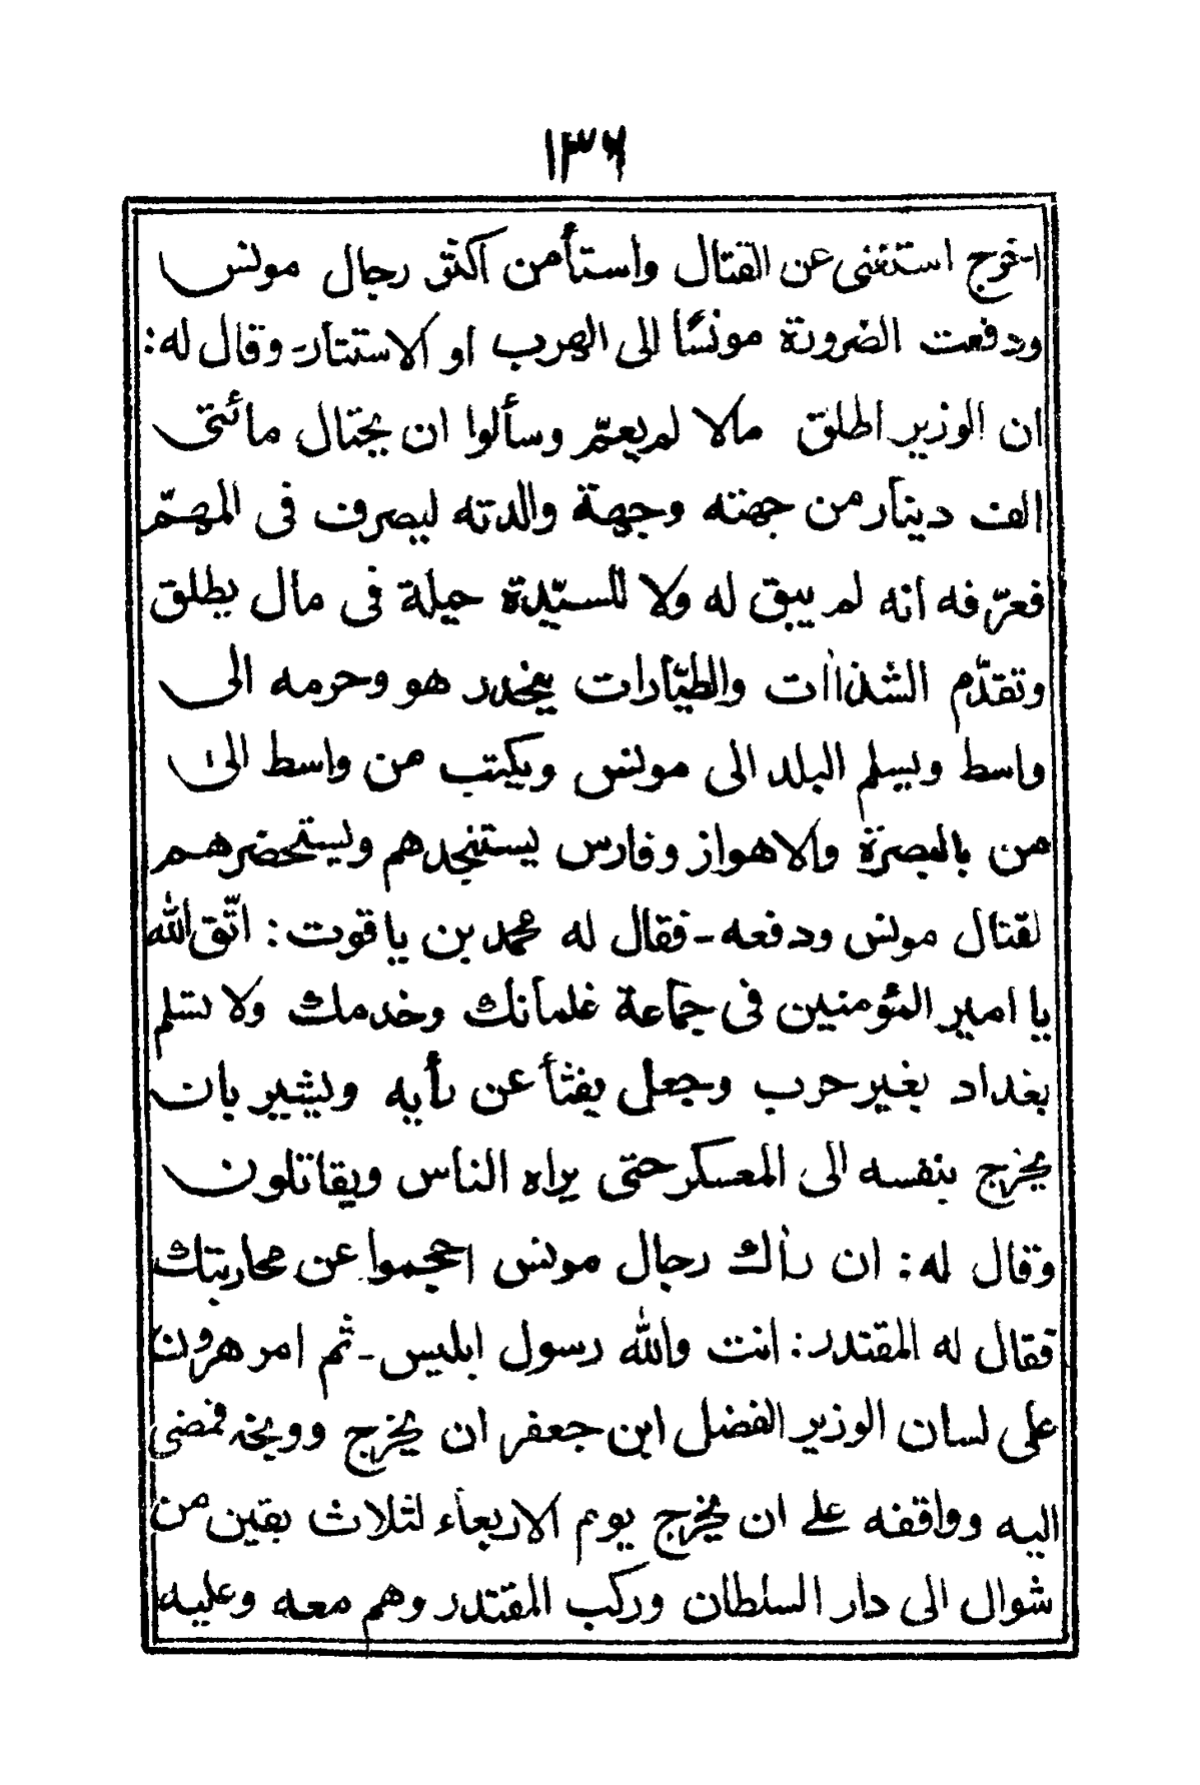 ١٣٦
اخرج استغنى عن القتال واستأمن اكثر رجال مونس
ودفعت الضرورة مونسًا الى الهرب او الاستتار وقال له:
ان الوزير اطلق مالا لم يعمّ وسألوا ان يحتال مائتى
الف دينار من جهته وجهة والدته ليصرف فى المهمّ
فعرّفه انه لم يبق له ولا للسيّدة حيلة فى مال يطلق
وتقدّم الشذاات والطيّارات ينحدر هو وحرمه الى
واسط ويسلم البلد الى مونس ويكتب من واسط الى
من بالبصرة والاهواز وفارس يستنجدهم ويستحضرهم
لقتال مونس ودفعه - فقال له محمد بن ياقوت: اتّق الله
يا امير المؤمنين فى جماعة غلمانك وخدمك ولا تسلم
بغداد بغير حرب وجعل يفثأ عن رأيه ويشير بان
يخرج بنفسه الى المعسكر حتى يراه الناس ويقاتلون
وقال له: ان رأاك رجال مونس احجموا عن محاربتك
فقال له المقتدر: انت والله رسول ابليس - ثم امر هرون
على لسان الوزير الفضل ابن جعفر ان يخرج ووبخه فمضى
اليه وواقفه على ان يخرج يوم الاربعاء لثلاث بقين من
شوال الى دار السلطان وركب المقتدر وهم معه وعليه